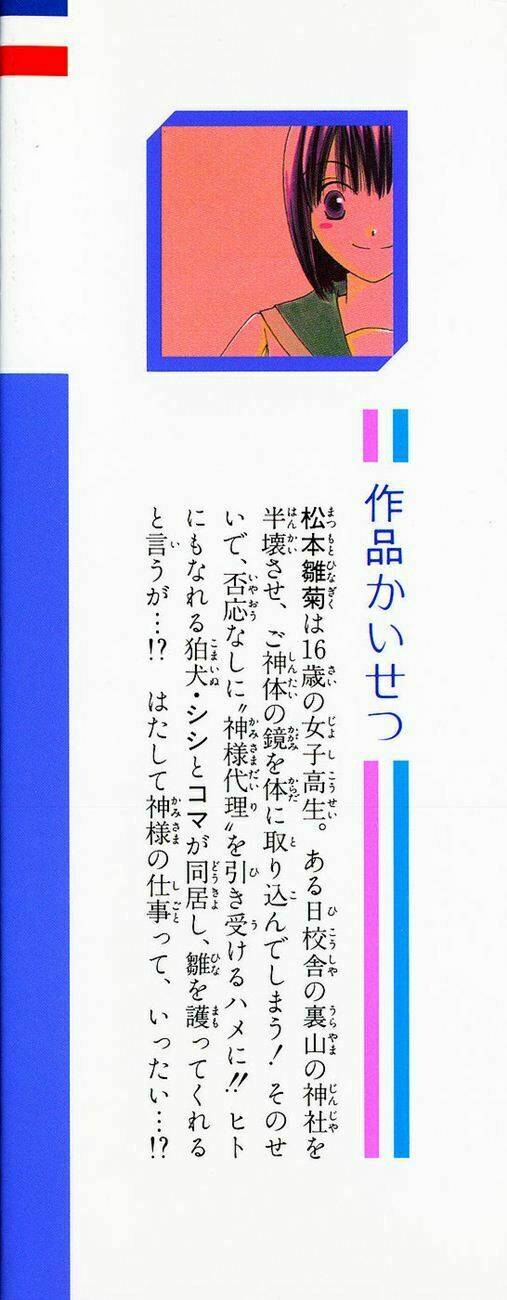 作品かいせつ
松本雛菊は16歳の女子高生。ある日校舎の裏山の神社を
半壊させ、ご神体の鏡を体に取り込んでしまう！そのせ
いで、否応なしに〝神様代理〟を引き受けるハメに!!ヒト
にもなれる狛犬・シシとコマが同居し、雛を護ってくれる
と言うが…!?はたして神様の仕事って、いったい…!?